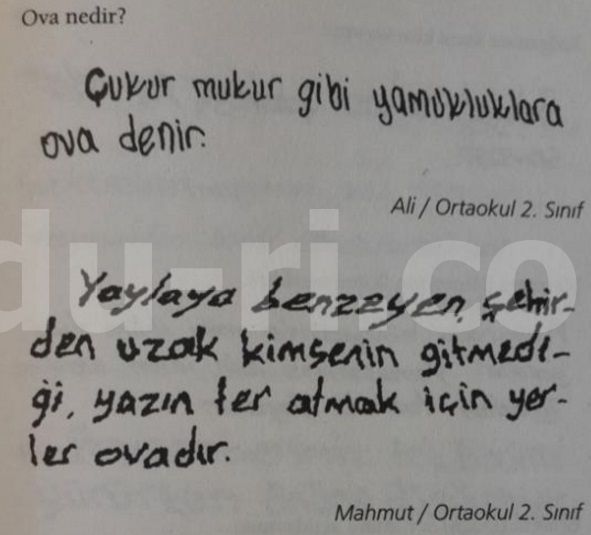 Ova nedir?
Çukur mukur gibi yamukluklara
ova denir.
Ali / Ortaokul 2. Sınıf
du-ri.co
Yaylaya benzeyen, şehir-
den uzak kimsenin gitmedi-
ği, yazın ter atmak için yer-
ler ovadır.
Mahmut / Ortaokul 2. Sınıf